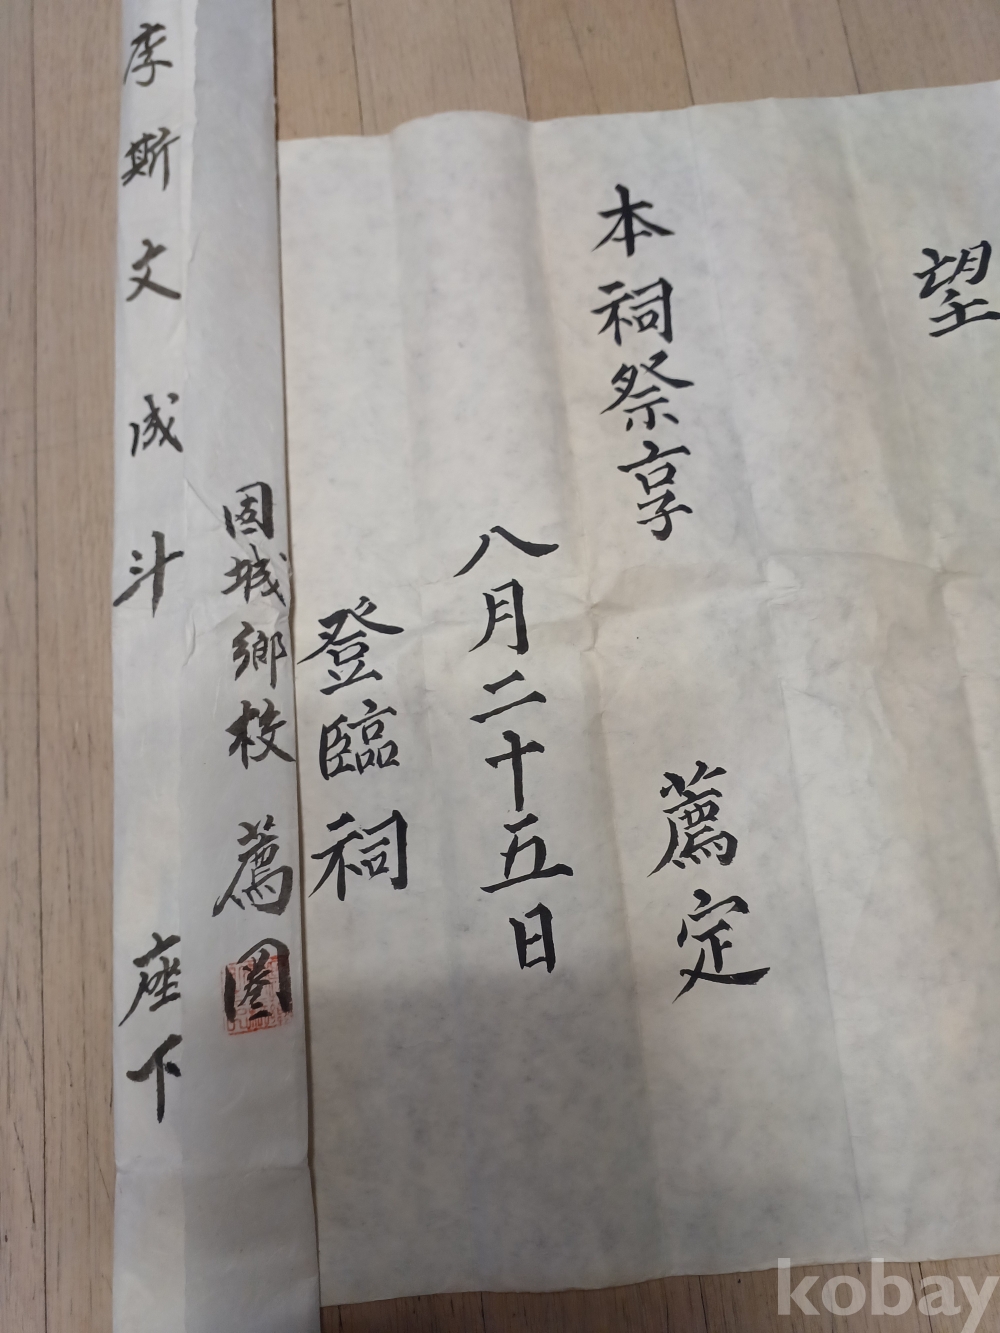 望
本祠祭享
薦定
八月二十五日
登臨祠
固城鄉校 薦圈
李斯文 成斗 座下
kobay